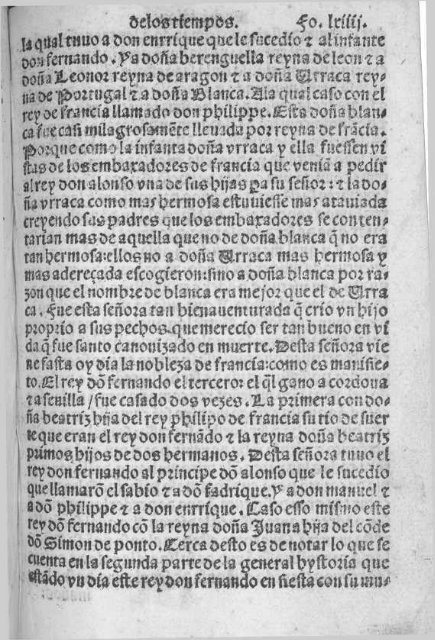 delos tiempos. Fo. lxiiij.
la qual tuuo a don enrrique que le sucedio ⁊ al infante
don fernando. Y a doña berenguella reyna de leon ⁊ a
doña Leonor reyna de aragon ⁊ a doña Urraca rey-
na de Portugal ⁊ a doña Blanca. A la qual caso con el
rey de francia llamado don philippe. Esta doña blan-
ca fue casi milagrosamẽte lleuada por reyna de frãcia.
Porque como la infanta doña vrraca y ella fuessen vi
stas de los embaxadores de francia que veniã a pedir
al rey don alonso vna de sus hijas pa su señor: ⁊ la do-
ña vrraca como mas hermosa estuuiesse mas atauiada
creyendo sus padres que los embaxadores se conten-
tarian mas de aquella que no de doña blanca q̃ no era
tan hermosa: ellos no a doña Urraca mas hermosa y
mas adereçada escogieron: sino a doña blanca por ra-
zon que el nombre de blanca era mejor que el de Urra
ca. Fue esta señora tan bienauenturada q̃ crio vn hijo
proprio a sus pechos que merecio ser tan bueno en vi
da q̃ fue santo canonizado en muerte. Desta señora vie
ne fasta oy dia la nobleza de francia: como es manifie-
to. El rey dõ fernando el tercero: el q̃l gano a cordoua
⁊ a seuilla / fue casado dos vezes. La primera con do-
ña beatriz hija del rey philipo de francia su tio de suer
te que eran el rey don fernãdo ⁊ la reyna doña beatriz
primos hijos de dos hermanos. Desta señora tuuo el
rey don fernando al principe dõ alonso que le sucedio
que llamarõ el sabio ⁊ a dõ fadrique. Y a don manuel ⁊
a dõ philippe ⁊ a don enrrique. Caso esso mismo este
rey dõ fernando cõ la reyna doña Juana hija del cõde
dõ Simon de ponto. Cerca desto es de notar lo que se
cuenta en la segunda parte de la general hystoria que
estãdo vn dia este rey don fernando en fiesta con su mu-